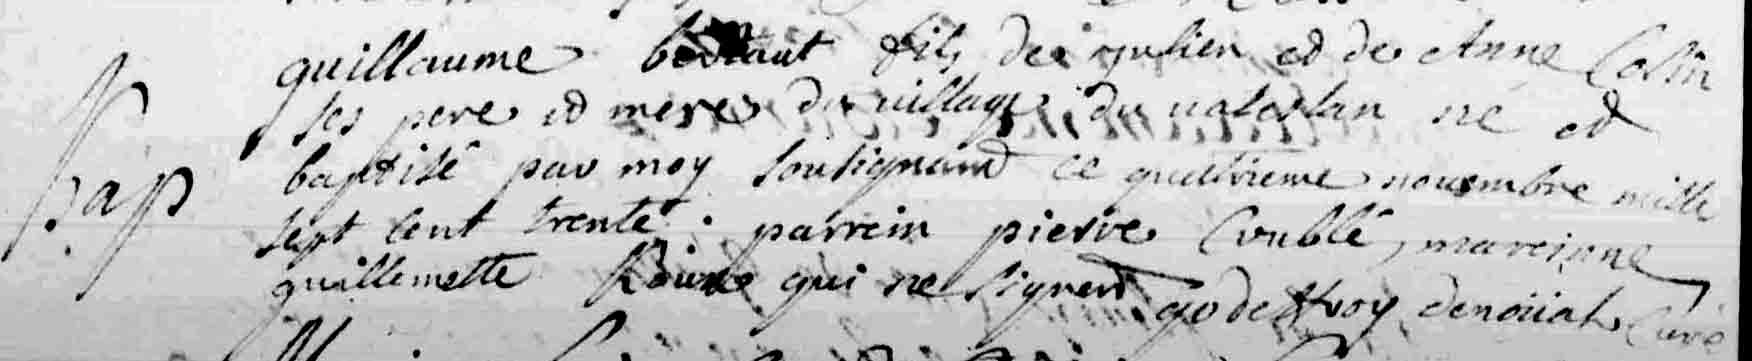 guillaume fils de julien et de Anne Colin
ses pere et mere du village du né et
bap
baptisé par moy soubsignant ce quatrieme novembre mille
sept cent trente. parrein pierre Coublé, mareinne
guillemette qui ne signent godeffroy curé